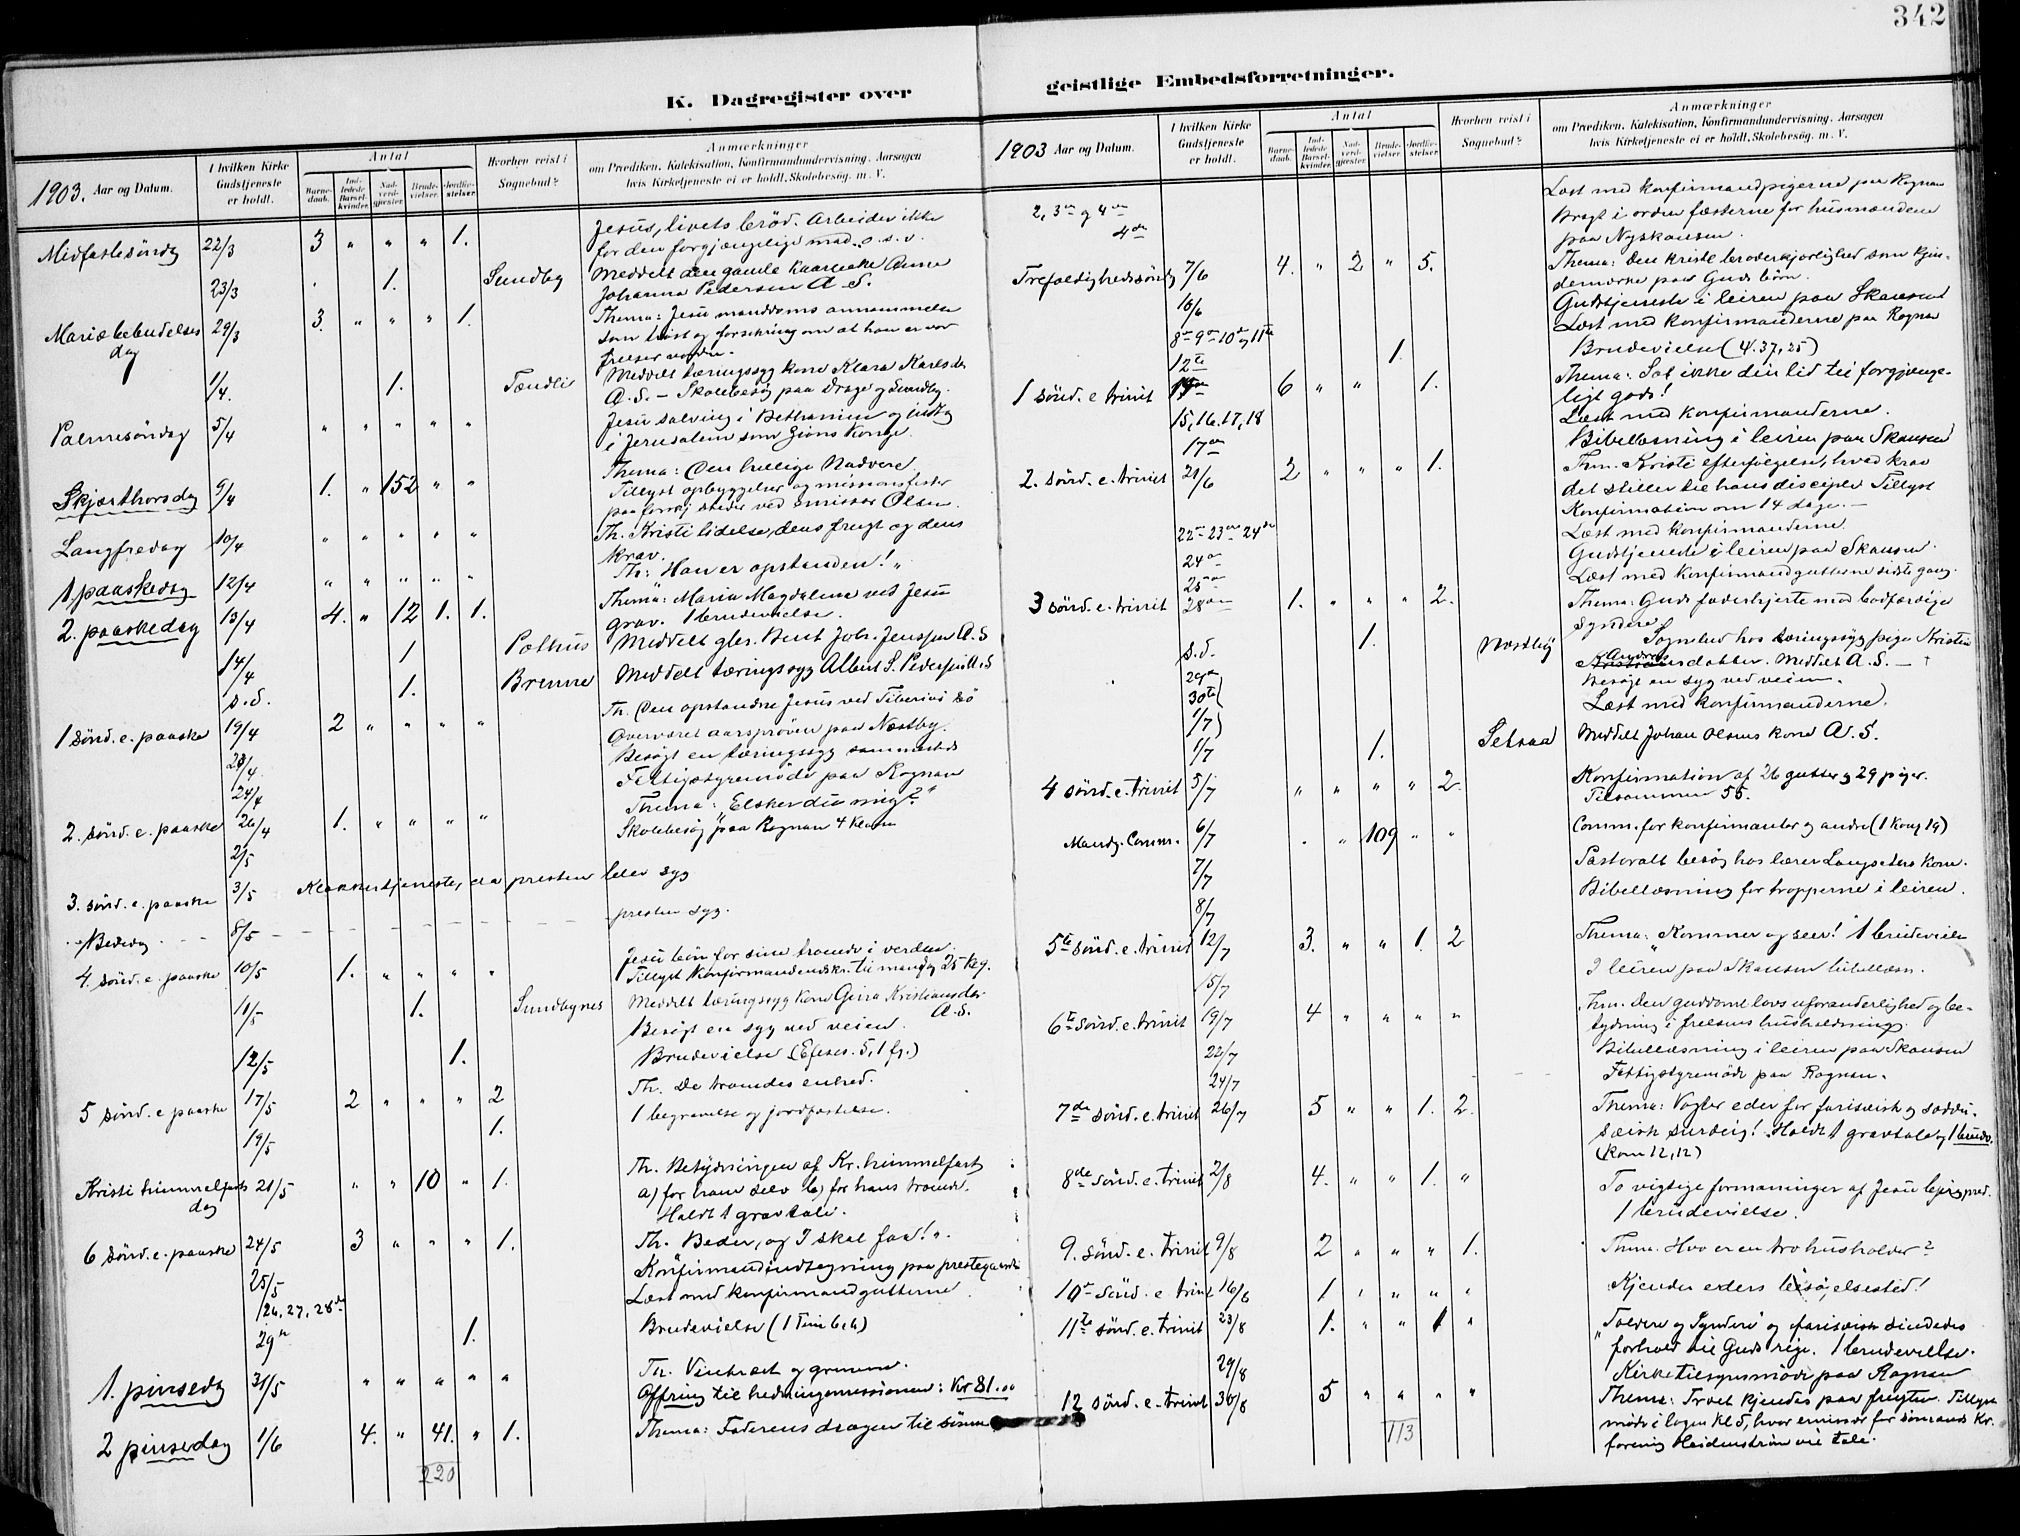 342
K. Dagregister over
geistlige Embedsforretninger.
1903. Aar og Datum.
I hvilken Kirke Gudstjeneste er holdt.
Antal
Barne-daab.
Ind-ledede Barsel-kvinder.
Nad-verd-gjester.
Brude-vielser.
Jordfæ-stelser.
Hvorhen reist i Sognebud?
Anmærkninger
om Prædiken, Katekisation, Konfirmandundervisning, Aarsagen
hvis Kirketjeneste ei er holdt, Skolebesøg, m. V.
Midfastesöndg 22/3 3 " " " 1. Jesus, livets bröd. Arbeider ikke
for den forgjængelige mad o.s.v.
23/3 1. Sundby Meddelt den gamle Anne
Johanna Pedersen A. S.
Mariæ bebudelses dag 29/3 3. " " " 1. Thema: Jesu manddoms annammelse
som tröst og forskning om at han er vor
frelser
1/4. 1. Tændli Meddelt tæringssyg kone Klara Karlsdr
A. S. – Skolebesög paa Drage og Sundby.
Palmesöndag 5/4 " " " " " Jesu salving i Bethanien og indtog
i Jerusalem som Zions Konge.
Skjærthorsdg 9/4 1. " 152 " " Thema: Den hellige Nadvere
Tillyst opbyggelser og missionsfester
paa forskj steder ved emissær Olsen.
Langfredag 10/4 " " " " " Th. Kristi lidelse, dens frugt og dens
krav.
1. paaskedag 12/4 " " " " " Th: Han er opstanden! "
2. paaskedag 13/4 4. " 12 1. 1. Thema: Maria Magdalena ved Jesu
grav. 1 brudevielse.
14/4 1 Pothus Meddelt gbr. Bent Joh. Jenssen A. S
s.d. 1. Brenne Meddelt tæringssyg Albert S. Pederssen A. S
1 sönd. e. paaske 19/4 2 " " " " Th. Den opstandne Jesus ved Tiberias sö
Overværet aarspröven paa Næstby.
Besögt en tæringssyg sammesteds
24/4 Fattigstyremöde paa Rognan
2. sönd. e. paaske 26/4 1. " " " " Thema: "Elsker du mig?"
2/5 Skolebesög paa Rognan 4 klasse
3. sönd. e. paaske 3/5 Klokkertjeneste, da presten blev syg
Bededag 8/5 presten syg.
4. sönd. e. paaske 10/5 1. " " " " Jesu bön for sine troende i verden.
Tillyst konfirmandindskr. til mandg 25 kg.
11/5 1. Sundbynes Meddelt tæringssyg kone Gjura Kristiansdr
A. S.
Besögt en syg ved veien.
12/5 1. Brudevielse (Efeser. 5, 1 fg.)
5 sönd. e paaske 17/5 2 " " " 2 Th. De troendes enhed.
19/5 1. 1 begravelse og jordfæstelse.
Kristi himmelfarts dag 21/5 " " 10 " 1. Th. Betydningen af Kr. himmelfart
a) for ham selv b) for hans troende.
Holdt 1 gravtale.
6 sönd. e. paaske 24/5 3 " " " 1. Th. Beder, og I skal faa!".
25/5 Konfirmandindtegning paa prestegaarden
26, 27, 28de Læst med konfirmandgutterne.
29n 1. Brudevielse (1 Tim 6,6)
1. pinsedg 31/5 " " " " " Th. Vintræet og grenene.
Offring til hedningemissionen: Kr 81.00
2 pinsedag 1/6 4. " 41. " 1. Thema: Faderens dragen til sönnen
220
1903 Aar og Datum.
I hvilken Kirke Gudstjeneste er holdt.
Antal
Barne-daab.
Ind-ledede Barsel-kvinder.
Nad-verd-gjester.
Brude-vielser.
Jordfæ-stelser.
Hvorhen reist i Sognebud?
Anmærkninger
om Prædiken, Katekisation, Konfirmandundervisning, Aarsagen
hvis Kirketjeneste ei er holdt, Skolebesøg, m. V.
2, 3die og 4de Læst med konfirmandpigerne paa Rognan
4de Bragt i orden fæsterne for husmændene
paa Nyskansen.
Trefoldighedssöndg 7/6 4. " 2 " 5. Thema: Den kristl broderkjærlighed som kjen-
demærke paa Guds börn.
10/6 Gudstjeneste i leiren paa Skansen
8de 9de 10de og 11te Læst med konfirmanderne paa Rognan
12te 1. Brudevielse (4. 37, 25)
1 sönd. e trinit 6 " " 1. Thema: Set ikke din lid til forgjænge-
ligt gods!
15, 16, 17, 18 Læst med konfirmanderne.
17de Bibellæsning i leiren paa Skansen
2. sönd. e. trinit 21/6 2 " " " 1. Thm. Kristi efterfölgelse, hvad krav
det stiller til hans disciple. Tillyst
Konfirmation om 14 dage. –
22 23 24de Læst med konfirmanderne.
24de Gudstjeneste i leiren paa Skansen.
25de Læst med konfirmandgutterne sidste gang.
3 sönd. e. trinit 28de 1. " " " 2. Thema: Guds faderhjerte mod bodfærdige
syndere
s.d. 1. Næstby Sognebud hos tæringssyg pige Kristine
Andreasdatter. Meddelt A. S. –
29de Besögt en syg ved veien.
30te 1/7 Læst med konfirmanderne.
1/7 1. Setsaa Meddelt Johan Olsens kone A. S.
4 sönd. e. trinit 5/7 " " " " 2. Konfirmation af 26 gutter og 29 piger.
Tilsammen 55.
Mandg. Comm. 6/7 . " 109 " " Comm. for konfirmanter og andre (1 Kong 19)
7/7 Pastoralt besög hos lærer Langseters kone.
8/7 Bibellæsning for tropperne i leiren.
5te sönd. e. trinit 12/7 3. " " 1. 2 Thema: "Kommer og seer! 1 brudevielse
15/7 I leiren paa Skansen bibellæsn.
6te sönd. e. trinit 19/7 4 " " " " Thm. Den guddoml lovs uforanderlighed og be-
tydning i frelsens husholdning.
22/7 Bibellæsning i leiren paa Skansen
24/7 Fattigstyremöde paa Rognan.
7de sönd. e. trinit 26/7 5 " " 1. 2. Thema: Vogter eder for farisæisk og saddu-
sæisk surdeig! Holdt 1 gravtale og 1 brudv.
(Rom 12, 12)
8de sönd. e. trinit 2/8 4. " " 1. " To vigtige formaninger af Jesu bjergpræd.
1 brudevielse.
9. sönd. e. trinit 9/8 2 " " " 1. Thma. Hvo er en tro husholder?
10de sönd. e trint 16/8 1 " " " " Kjender eders besögelsestid!
11te sönd. e. trinit 23/8 1. " " 1 " "Toldere og Syndere" og farisæisk sindedes
forhold til Guds rige. 1 brudevielse.
29/8 Kirketilsynsmöde paa Rognan
12 sönd. e. trinit 30/8 5 " " " " Thema: Træet kjendes paa frugten. Tillyst
möde i logen kl 5, hvor emissær for sömands Kr.
forening Heidenström vil tale.
113